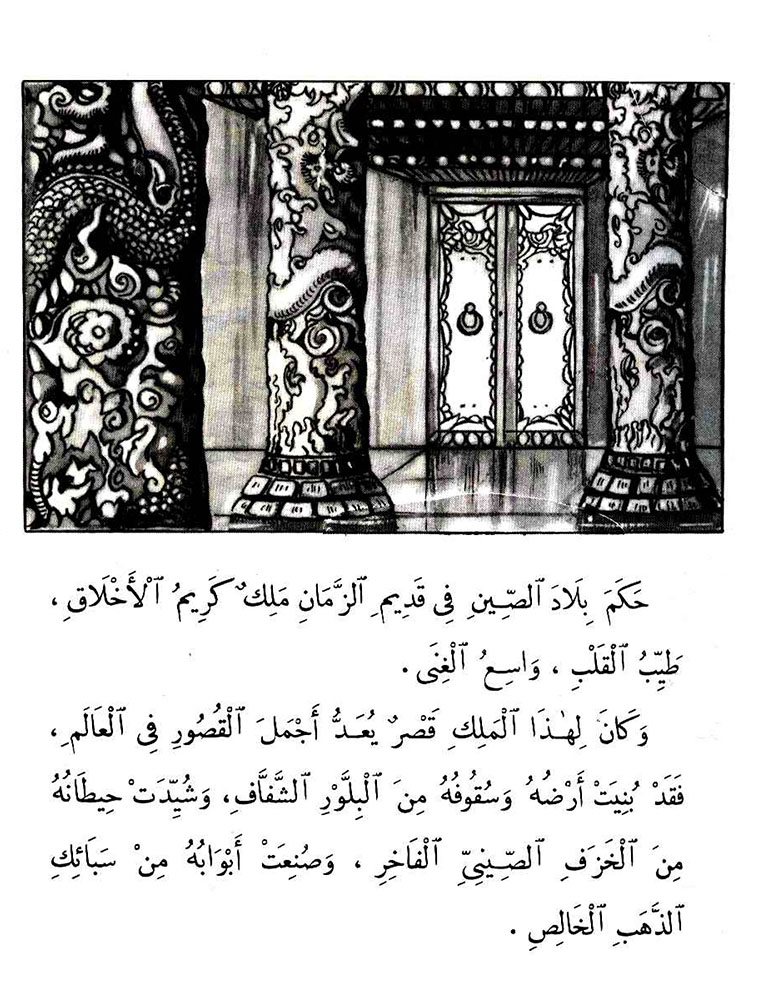 حَكَمَ بِلَادَ ٱلصِّينِ فِى قَدِيمِ ٱلزَّمَانِ مَلِكٌ كَرِيمُ ٱلْأَخْلَاقِ ،
طَيِّبُ ٱلْقَلْبِ ، وَاسِعُ ٱلْغِنَى .
وَكَانَ لِهٰذَا ٱلْمَلِكِ قَصْرٌ يُعَدُّ أَجْمَلَ ٱلْقُصُورِ فِى ٱلْعَالَمِ ،
فَقَدْ بُنِيَتْ أَرْضُهُ وَسُقُوفُهُ مِنَ ٱلْبِلَّوْرِ ٱلشَّفَّافِ، وَشُيِّدَتْ حِيطَانُهُ
مِنَ ٱلْخَزَفِ ٱلصِّينِىِّ ٱلْفَاخِرِ ، وَصُنِعَتْ أَبْوَابُهُ مِنْ سَبَائِكِ
ٱلذَّهَبِ ٱلْخَالِصِ .